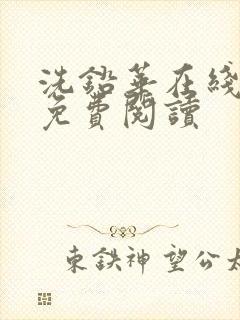 洗鉛華在綫
免費閱讀
東鉄神望公太